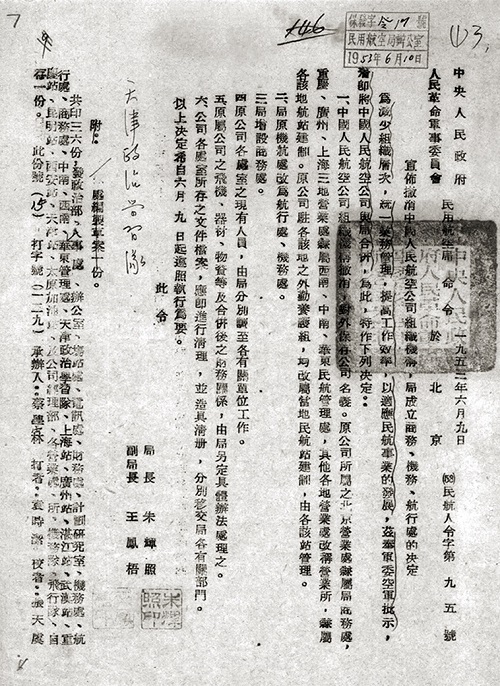 7
保發字 417 號
民用航空局辦公室
1953年6月10日
中央人民政府
人民革命軍事委員會
民用航空局 命令 於北京
一九五三年六月九日
(53)民航人令字第九五號
宣佈撤消中國人民航空公司組織機構 局成立商務、機務、航行處的決定
為減少組織層次,統一業務管理,提高工作效率,以適應民航事業的發展,茲奉軍委空軍批示,
着即將中國人民航空公司與局合併,為此,特作下列決定:
一、中國人民航空公司組織機構撤消,對外保存公司名義。原公司所屬之北京營業處隸屬局商務處,
重慶、廣州、上海三地營業處隸屬西南、中南、華東民航管理處,其他各地營業處改稱營業所,隸屬
各該地航站建制。原公司駐各該地之外勤養護組,均改屬當地民航站建制,由各該站管理。
二、局原機航處改為航行處、機務處。
三、局增設商務處。
四、原公司各處室之現有人員,由局分別調至各有關單位工作。
五、原屬公司之飛機、器材、物資等及合併後之財務關係,由局另定具體辦法處理之。
六、公司各處室所存之文件檔案,應即進行清理,並造具清册,分別移交局各有關部門。
以上決定希自六月九日起遵照執行為要。
此令
局長 朱輝照
副局長 王鳳梧
天津政治學習隊
附:處編製草案一份。
共印三六份:發政治部、人事處、辦公室、電訊處、財務處、計劃研究室、機務處、航
行處、商務處、中南、西南、華東管理處、天津政治學習隊、上海站、廣州站、湛江站、武漢站、重
慶站、昆明站、西安站、天津站、太原站、飛行隊、自
存一份。此份號(15) 打字號(一二九) 承辦人:蔡 打者:袁時 校者:張天處